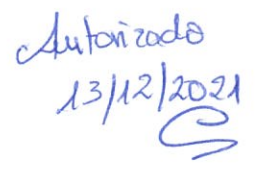 Autorizado
13/12/2021